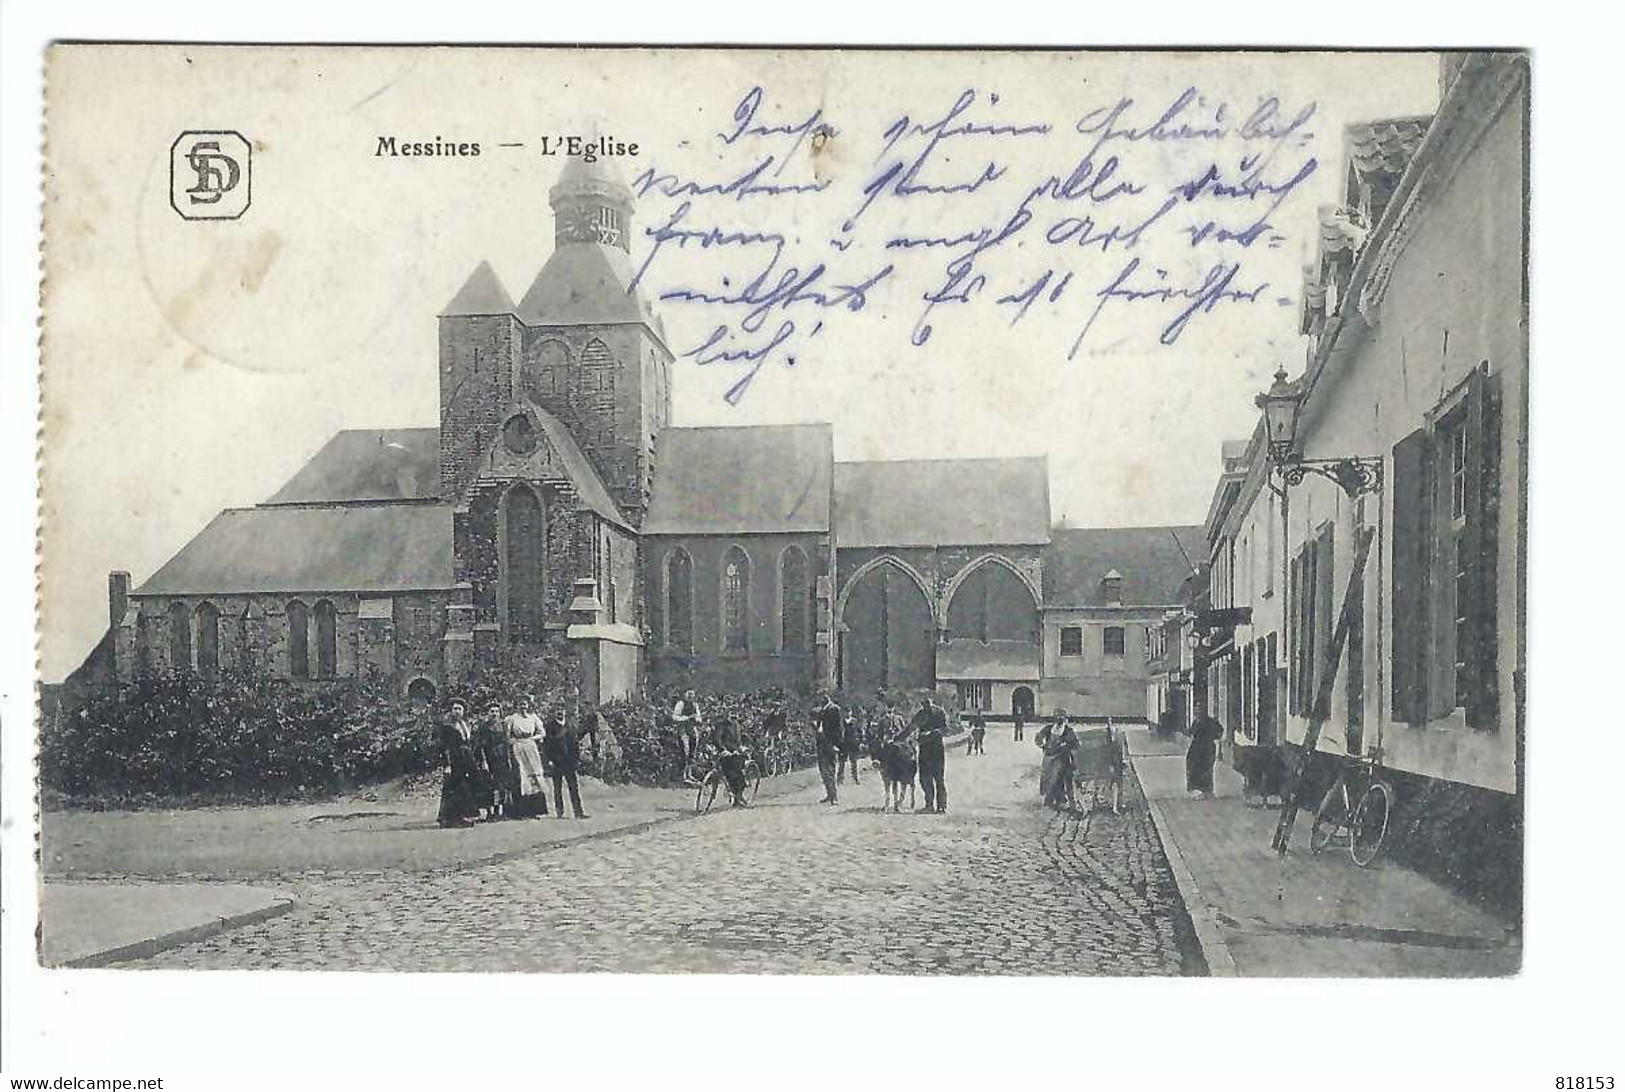 SD
Messines — L'Eglise
Diese schöne Gebäulich-
keiten sind alle durch
franz. u. engl. Art. ver-
nichtet Es ist fürchter-
lich!
www.delcampe.net
818153